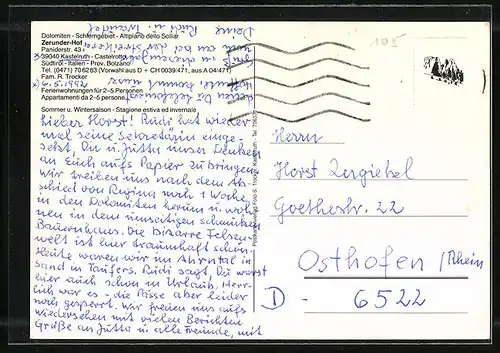 Dolomiten - Schlerngebiet - Altipiano dello Sciliar
Zerunder-Hof
Paniderstr. 43
39040 Kastelruth - Castelrotto
Südtirol - Italien - Prov. Bolzano
Tel. (0471) 706283 (Vorwahl aus D + CH 0039/471, aus A 04/471)
Fam. R. Trocker
Ferienwohnungen für 2-5 Personen
Appartamenti da 2-5 persone
Sommer u. Wintersaison - Stagione estiva ed invernale
Lieber Horst! Rudi hat wieder
mal seine Sekretärin einge-
setzt, Du u. Jutta unser Denken
an Euch aufs Papier zu bringen.
Wir treiben uns nach dem Ab-
schied von Regina noch 1 Woche
in den Dolomiten herum u. woh-
nen in dem umseitigen schmucken
Bauernhaus. Die bizarre Felsen-
welt ist hier traumhaft schön.
Heute waren wir im Ahrntal in
Sand in Taufers. Rudi sagt, Du warst
hier auch schon in Urlaub. Herr-
lich war es - die Pässe aber leider
noch gesperrt. Wir freuen uns aufs
Wiedersehen mit vielen Berichten
Grüße an Jutta u. alle Freunde, mit
Deine Rudi u.
105
Herrn
Horst Zergiebel
Goethestr. 22
Osthofen /Rhein
D - 6522